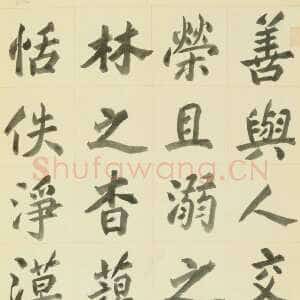 善與人交
榮且溺之
林之杳蔼
恬佚淨漠
Shufawang.CN